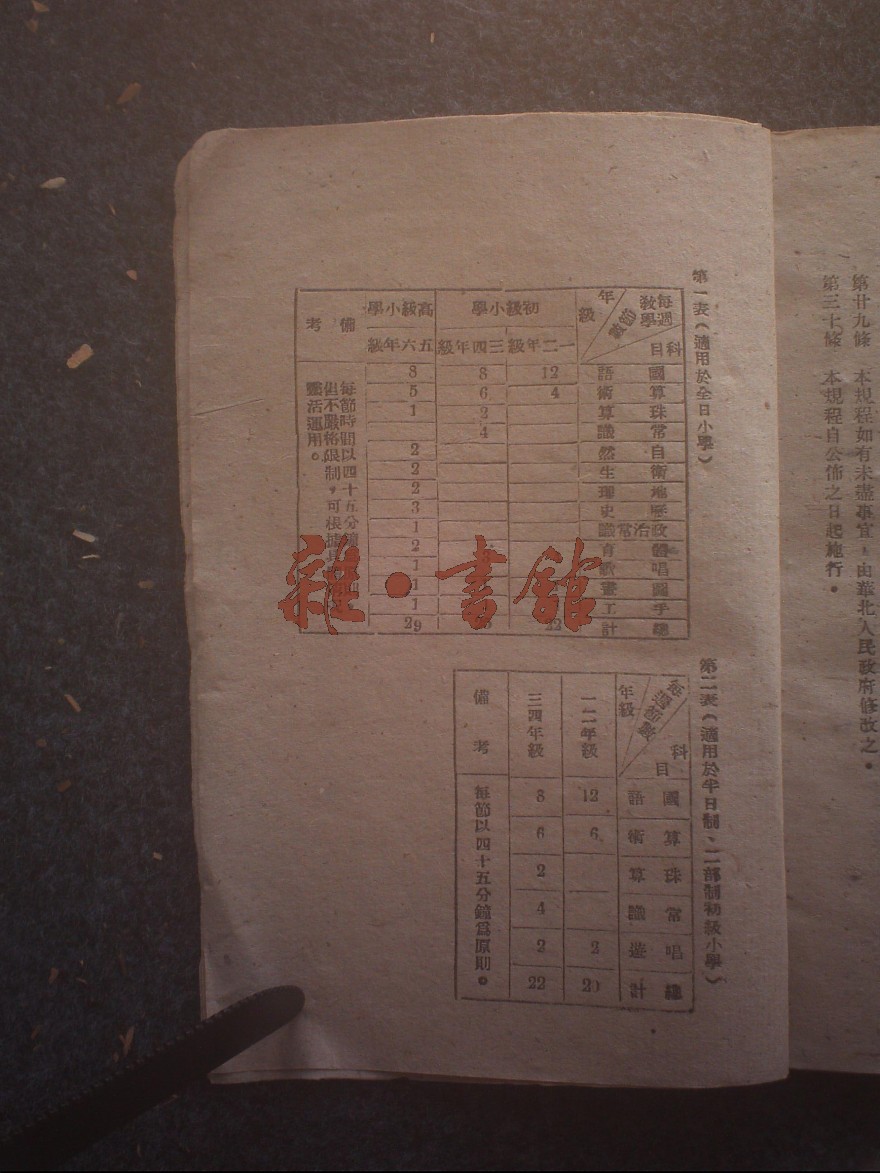 第廿九條　本規程如有未盡事宜，由華北人民政府修改之。
第三十條　本規程自公佈之日起施行。
第一表（適用於全日小學）
每週教學節數　年級　科目
初級小學　高級小學　備考
一二年級　三四年級　五六年級
國語　12　8　8
算術　4　6　5
珠算　2　1
常識　4
自然　2
衛生　2
地理　2
歷史　3
政治常識　1
體育　2
唱　1
圖畫　1
手工　1
總計　22　29
每節時間以四十五分鐘
但不嚴格限制，可根據
靈活運用。
第二表（適用於半日制、二部制初級小學）
每週節數　年級　科目
一二年級　三四年級　備考
國語　12　8
算術　6　6
珠算　2
常識　4
唱遊　2　2
總計　20　22
每節以四十五分鐘爲原則。
雜·書館